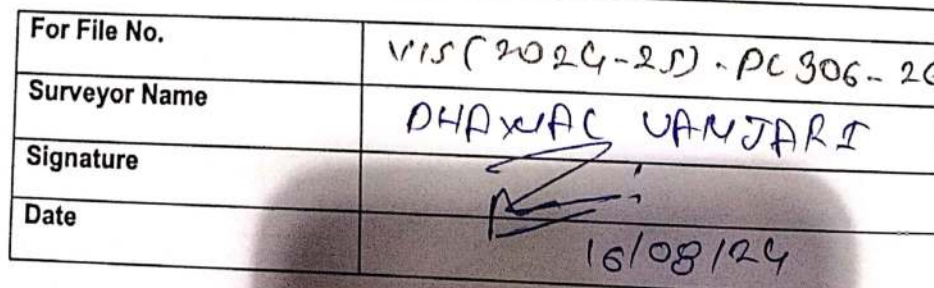 For File No. VIS(2024-25)-PC306-26
Surveyor Name DHAWAL VANJARI
Signature
Date 16/08/24